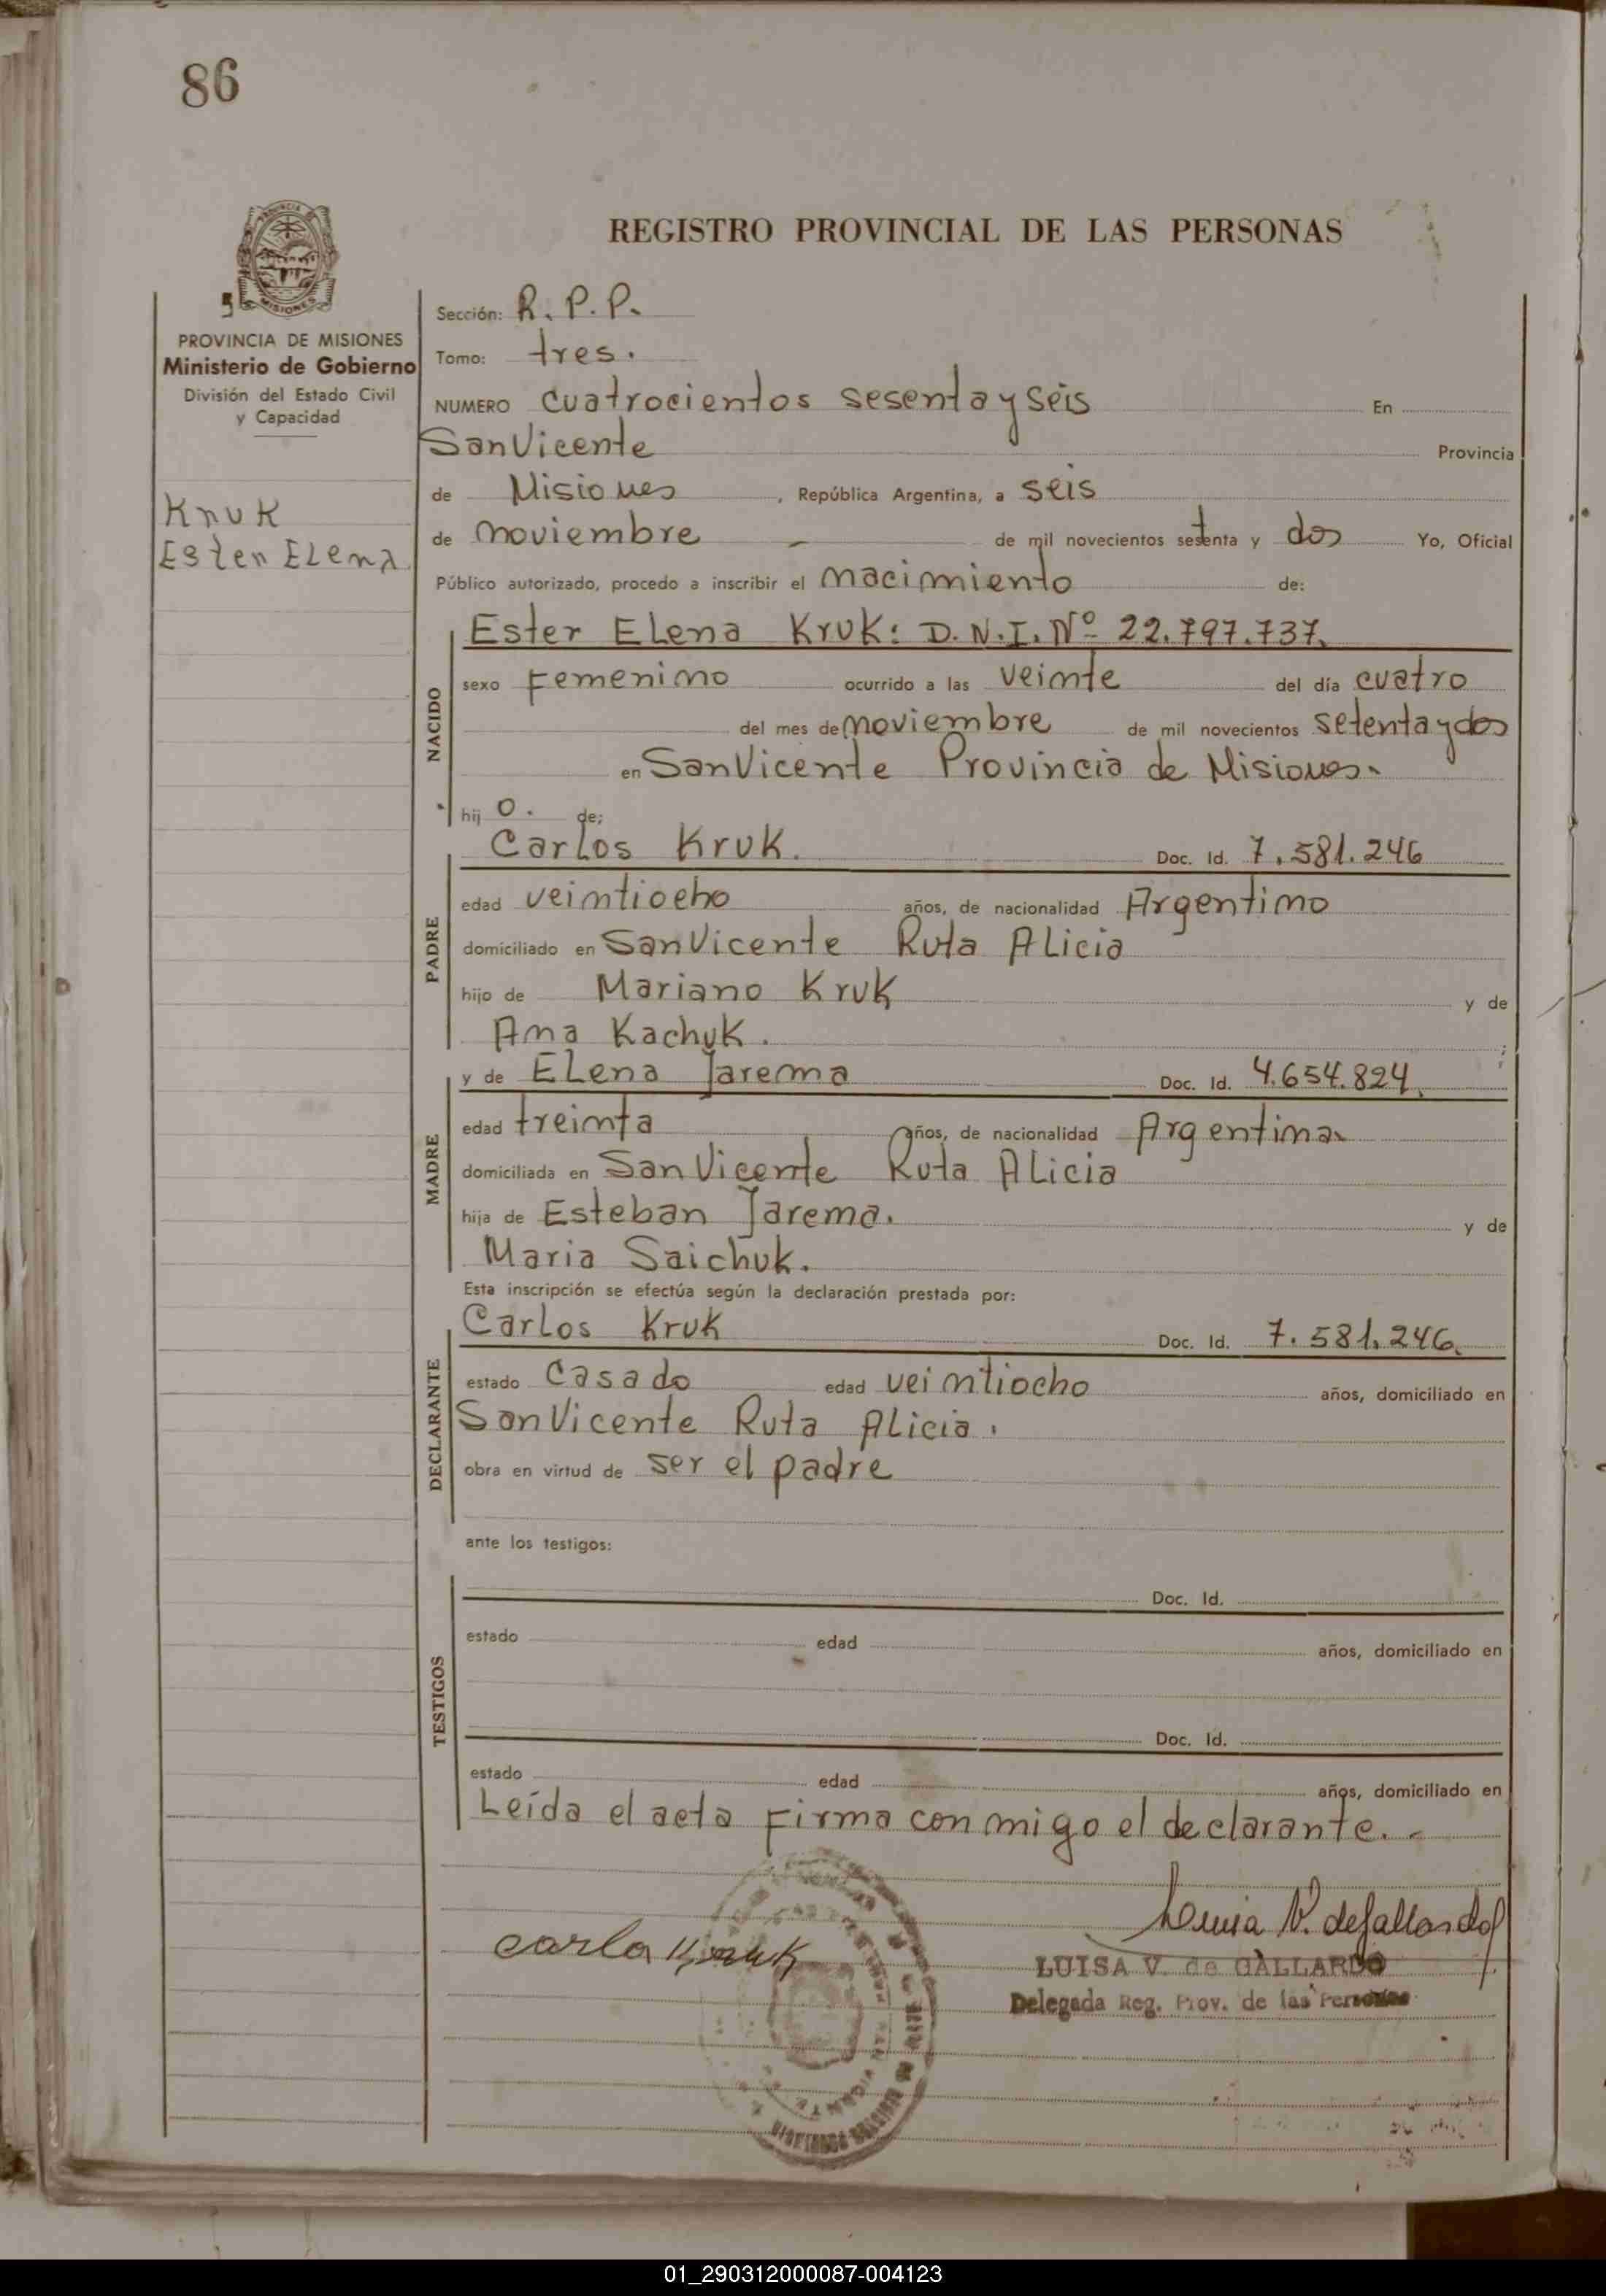 86
REGISTRO PROVINCIAL DE LAS PERSONAS
PROVINCIA DE MISIONES
Ministerio de Gobierno
División del Estado Civil
y Capacidad
Kruk
Ester Elena
Sección: R. P. P.
Tomo: tres.
NUMERO cuatrocientos sesenta y seis En
San Vicente Provincia
de Misiones, República Argentina, a seis
de noviembre de mil novecientos setenta y dos Yo, Oficial
Público autorizado, procedo a inscribir el nacimiento de:
NACIDO
Ester Elena Kruk: D.N.I. Nº 22.797.737.
sexo Femenino ocurrido a las veinte del día cuatro
del mes de noviembre de mil novecientos setenta y dos
en San Vicente Provincia de Misiones.
hij o. de;
PADRE
Carlos Kruk. Doc. Id. 7.581.246
edad veintiocho años, de nacionalidad Argentino
domiciliado en San Vicente Ruta Alicia
hijo de Mariano Kruk y de
Ana Kachuk. ;
MADRE
y de Elena Jarema Doc. Id. 4.654.824.
edad treinta años, de nacionalidad Argentina
domiciliada en San Vicente Ruta Alicia
hija de Esteban Jarema. y de
Maria Saichuk.
Esta inscripción se efectúa según la declaración prestada por:
DECLARANTE
Carlos Kruk Doc. Id. 7.581.246.
estado Casado edad veintiocho años, domiciliado en
San Vicente Ruta Alicia.
obra en virtud de ser el padre
ante los testigos:
TESTIGOS
Doc. Id.
estado edad años, domiciliado en
Doc. Id.
estado edad años, domiciliado en
Leída el acta Firma conmigo el declarante.-
Luisa V. de Gallardo
LUISA V. de GALLARDO
Delegada Reg. Prov. de las Personas
01_290312000087-004123